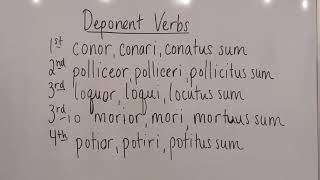 Deponent Verbs
1st conor, conari, conatus sum
2nd polliceor, polliceri, pollicitus sum
3rd loquor, loqui, locutus sum
3rd-io morior, mori, mortuus sum
4th potior, potiri, potitus sum